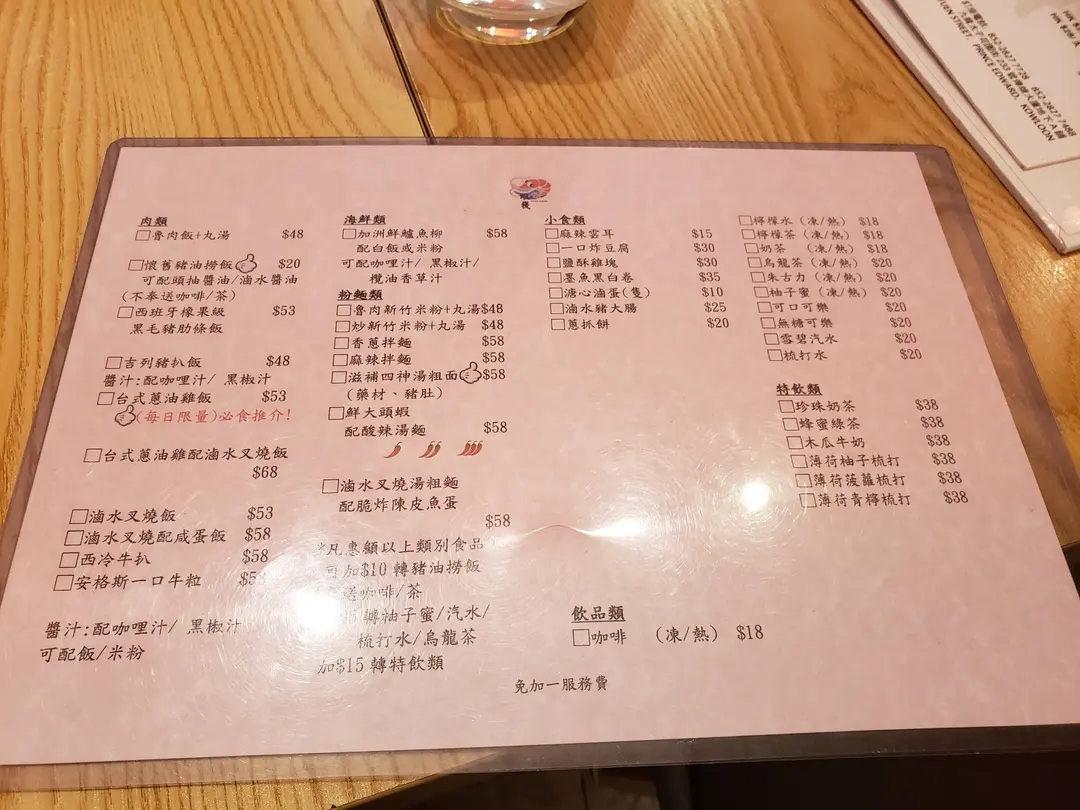 852-2827 7728 852-2827 7488
YUEN STREET, PRINCE EDWARD, KOWLOON
肉類
魯肉飯+丸湯 $48
懷舊豬油撈飯 $20
可配頭抽醬油/滷水醬油
(不奉送咖啡/茶)
西班牙橡果級 $53
黑毛豬肋條飯
吉列豬扒飯 $48
醬汁:配咖哩汁/ 黑椒汁
台式蔥油雞飯 $53
(每日限量)必食推介!
台式蔥油雞配滷水叉燒飯
$68
滷水叉燒飯 $53
滷水叉燒配咸蛋飯 $58
西冷牛扒 $58
安格斯一口牛粒
醬汁:配咖哩汁/ 黑椒汁
可配飯/米粉
海鮮類
加洲鮮鱸魚柳 $58
配白飯或米粉
可配咖哩汁/ 黑椒汁/
欖油香草汁
粉麵類
魯肉新竹米粉+丸湯 $48
炒新竹米粉+丸湯 $48
香蔥拌麵 $58
麻辣拌麵 $58
滋補四神湯粗面 $58
(藥材、豬肚)
鮮大頭蝦
配酸辣湯麵 $58
滷水叉燒湯粗麵
配脆炸陳皮魚蛋
$58
*凡惠顧以上類別食品
可加$10 轉豬油撈飯
送咖啡/茶
轉柚子蜜/汽水/
梳打水/烏龍茶
加$15 轉特飲類
小食類
麻辣雲耳 $15
一口炸豆腐 $30
鹽酥雞塊 $30
墨魚黑白卷 $35
溏心滷蛋(隻) $10
滷水豬大腸 $25
蔥抓餅 $20
飲品類
咖啡 (凍/熱) $18
免加一服務費
檸檬水 (凍/熱) $18
檸檬茶 (凍/熱) $18
奶茶 (凍/熱) $18
烏龍茶 (凍/熱) $20
朱古力 (凍/熱) $20
柚子蜜 (凍/熱) $20
可口可樂 $20
無糖可樂 $20
雪碧汽水 $20
梳打水 $20
特飲類
珍珠奶茶 $38
蜂蜜綠茶 $38
木瓜牛奶 $38
薄荷柚子梳打 $38
薄荷菠蘿梳打 $38
薄荷青檸梳打 $38